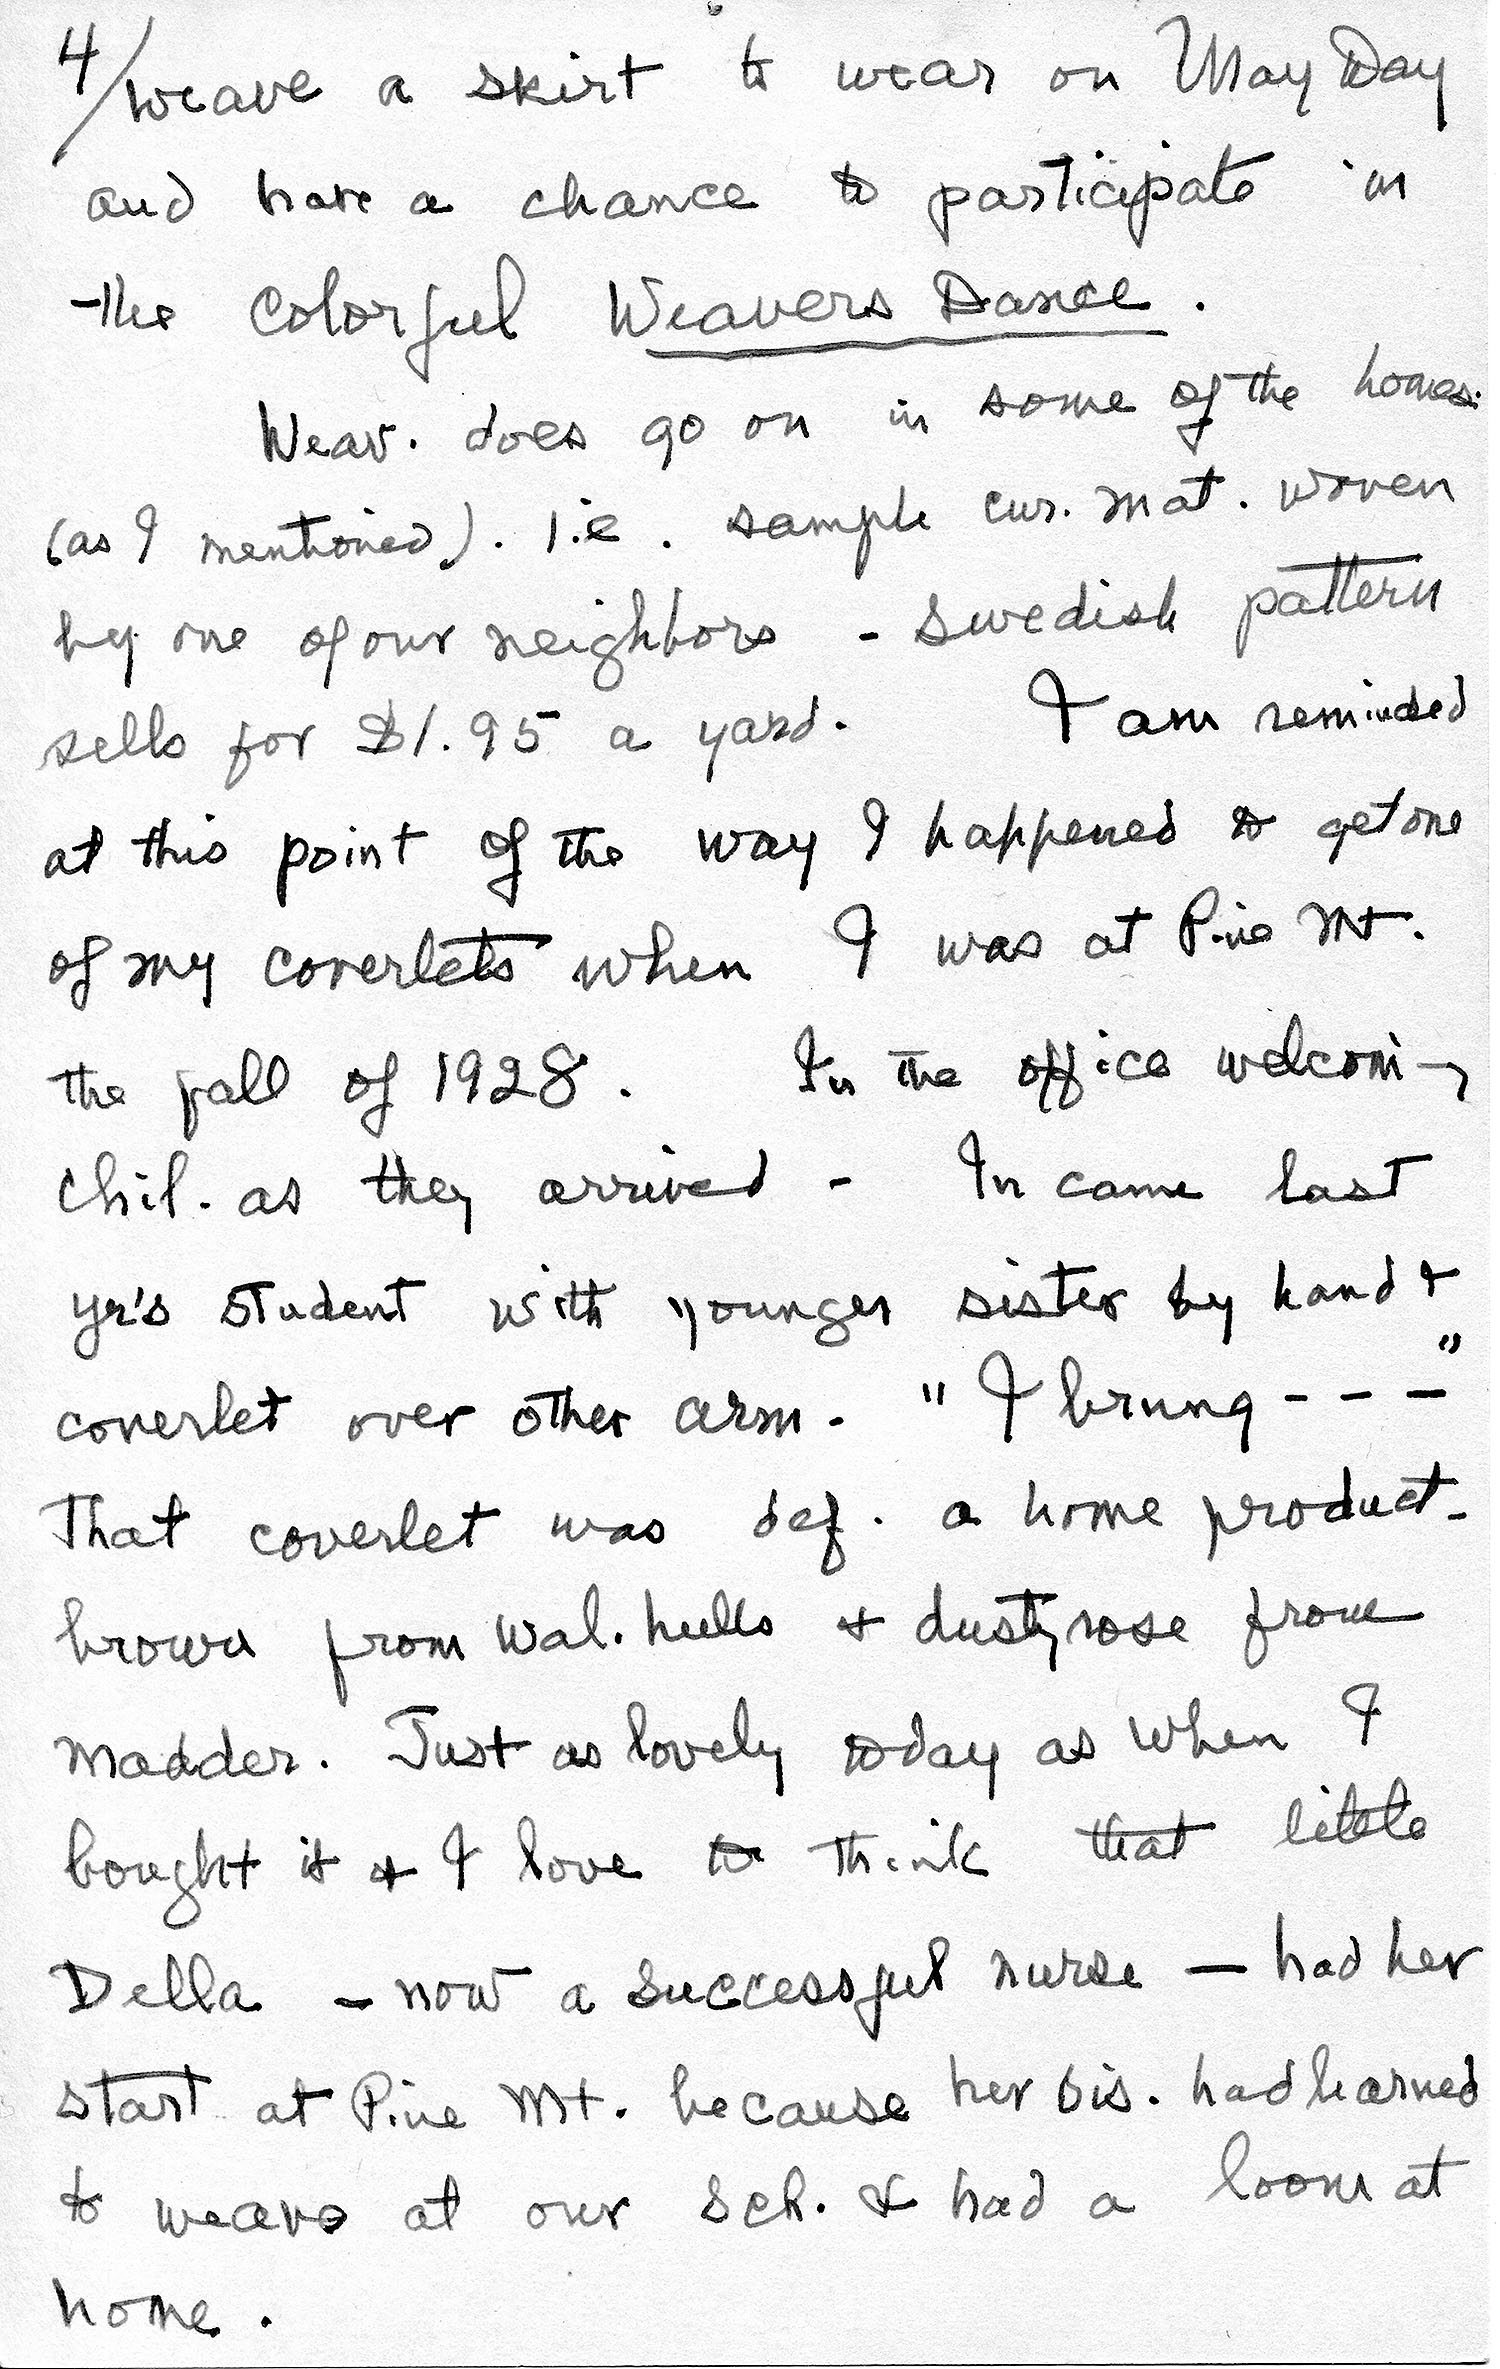 4/ weave a skirt to wear on May Day
and have a chance to participate in
the colorful Weavers Dance.
Weav. does go on in some of the homes.
(as I mentioned). I.e. sample cur. mat. woven
by one of our neighbors - Swedish pattern
sells for $1.95 a yard. I am reminded
at this point of the way I happened to get one
of my coverlets when I was at Pine Mt.
the fall of 1928. In the office welcom-
chil. as they arrived - In came last
yr's student with younger sister by hand &
coverlet over other arm. "I brung - - - "
That coverlet was def. a home product -
brown from wal. hulls & dusty rose from
madder. Just as lovely today as when I
bought it & I love to think that little
Della - now a successful nurse - had her
start at Pine Mt. because her sis. had learned
to weave at our sch. & had a loom at
home.